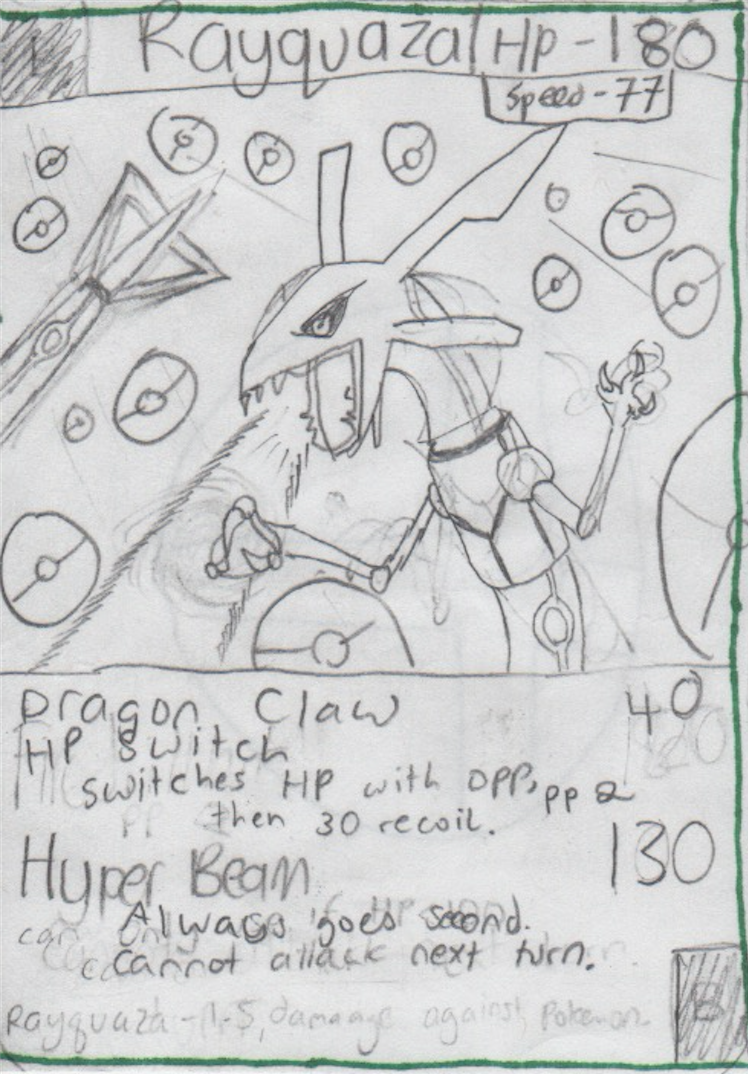 Rayquaza HP-180
Speed-77
Dragon Claw 40
HP Switch
switches HP with OPP, PP 2
then 30 recoil.
Hyper Beam 130
Always goes second.
cannot attack next turn.
Rayquaza - damaage against Pokemon